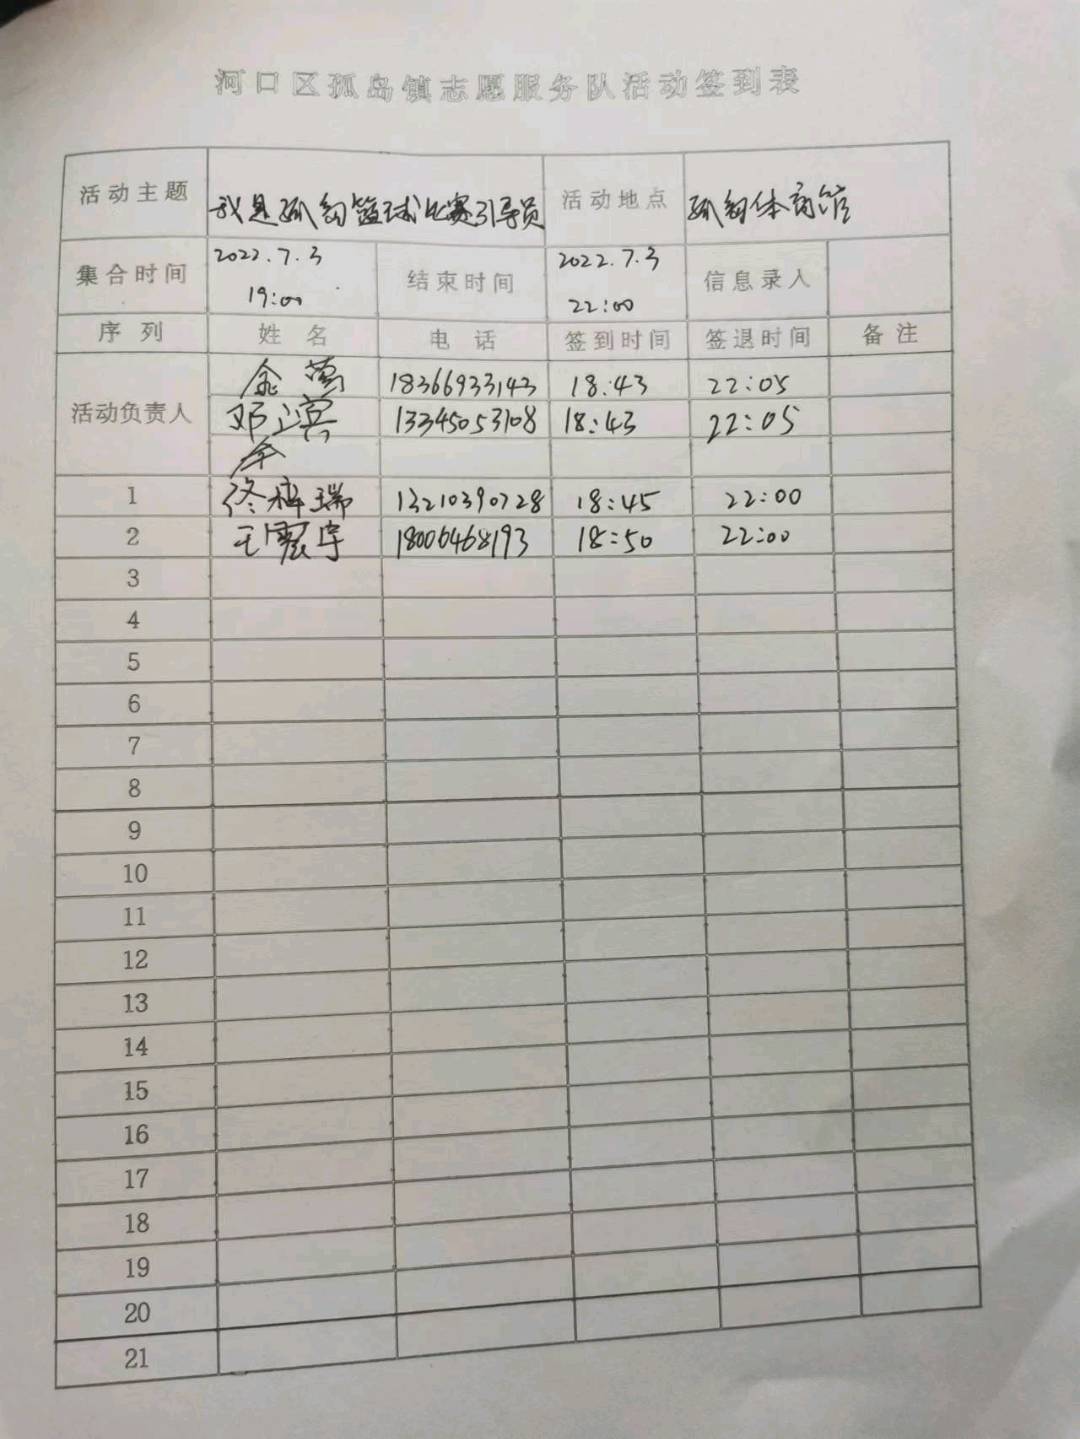 河口区孤岛镇志愿服务队活动签到表
活动主题 我是孤岛篮球比赛引导员 活动地点 孤岛体育馆
集合时间 2022.7.3 19:00 结束时间 2022.7.3 22:00 信息录入
序列 姓名 电话 签到时间 签退时间 备注
活动负责人
18366933143 18:43 22:05
邓滨 13345053108 18:43 22:05
1 佟梓瑞 13210390728 18:45 22:00
2 王震宇 18006468193 18:50 22:00
3
4
5
6
7
8
9
10
11
12
13
14
15
16
17
18
19
20
21